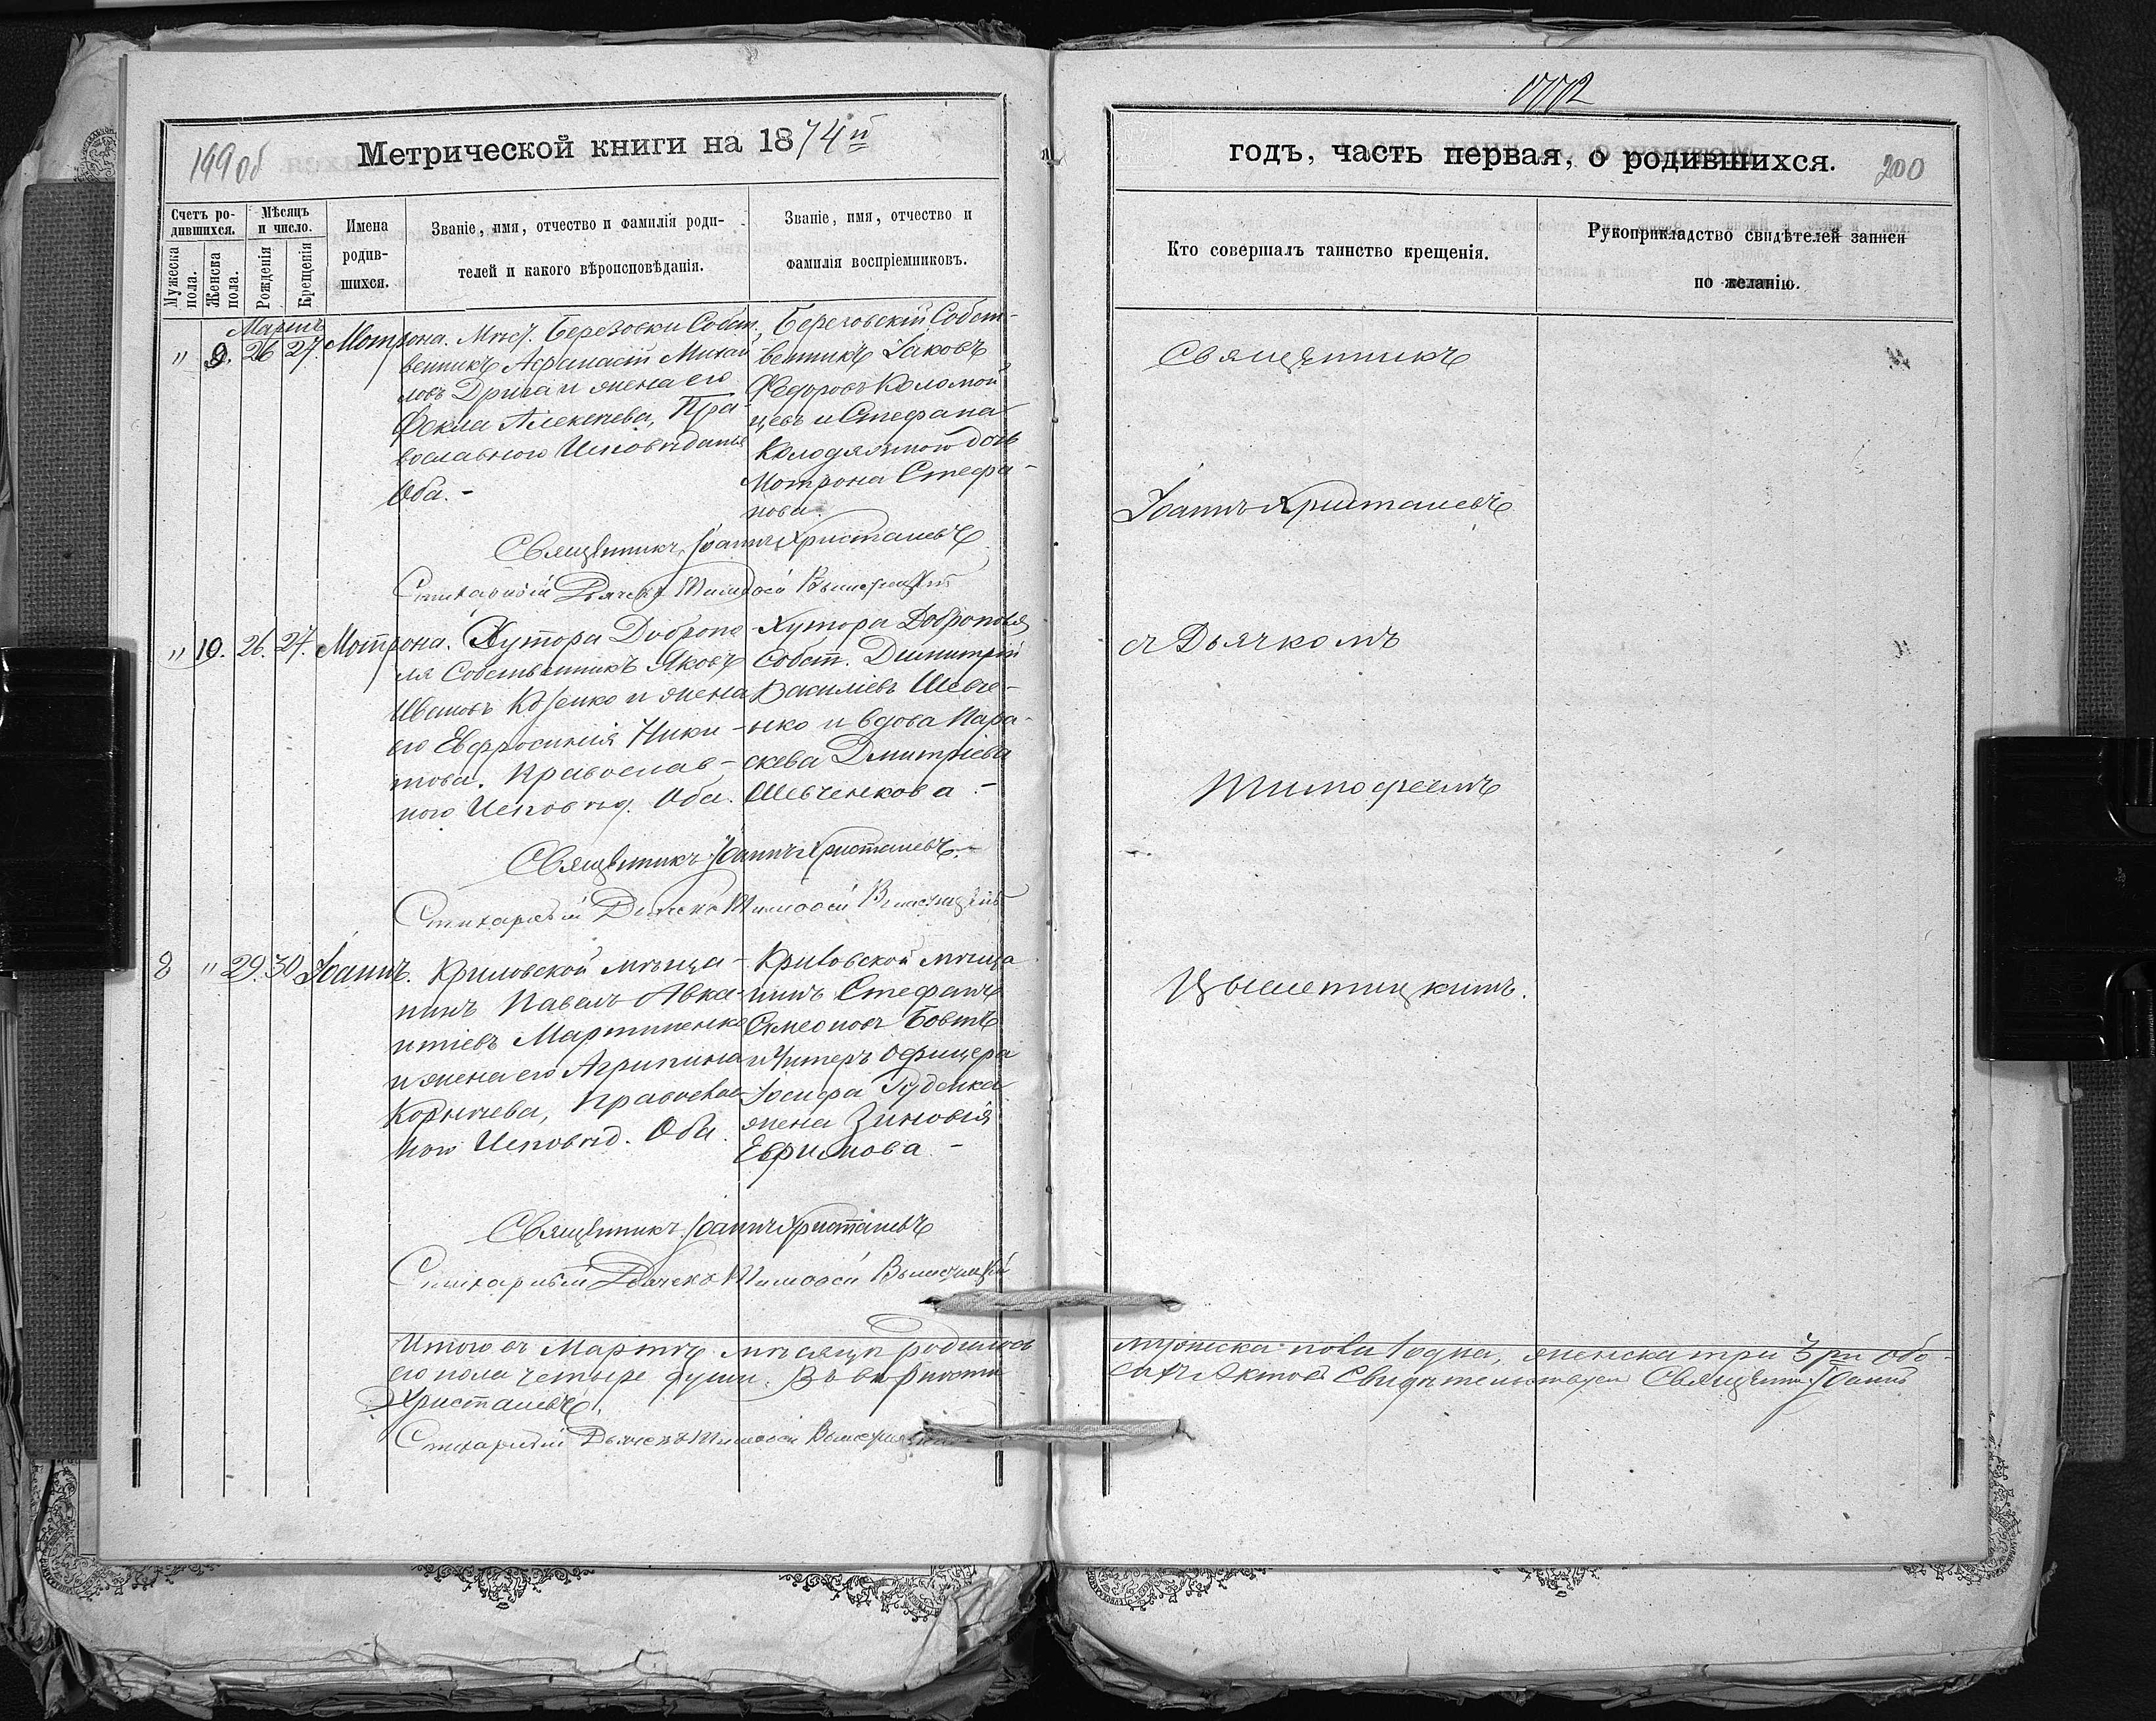 199об
Метрической книги на 1874й
Счетъ родившихся.
Мужеска пола.
Женска пола.
Мѣсяцъ и число.
Рожденія
Крещенія
Имена родившихся.
Званіе, имя, отчество и фамилія роди-
телей и какого вѣроисповѣданія.
Званіе, имя, отчество и
фамилія воспріемниковъ.
Мартъ
" 9. 26 27. Мотрона.
Мѣст. Березовки Собст-
венникъ Афанасій Михай
ловъ Дрига и жена его
Фекла Алексѣева, Пра-
вославного Исповѣданія
Оба. -
Березовскій Собст-
венникъ Іаковъ
Федоровъ Коломой
цевъ и Стефана
Колодяжного дочь
Мотрона Стефа-
нова.
Священникъ Іоаннъ Христалевъ
Стихарный Дьячекъ Тимофей
" 10. 26. 27. Мотрона.
Хутора Добропо-
ля Собственникъ Яковъ
Ивановъ Козенко и жена
его Евфросинія Ники-
това. Православ-
ного Исповѣд. Оба.
Хутора Доброполя
Собст. Димитрій
Василіевъ Шевче-
нко и вдова Пара-
скева Дмитріева
Шевченкова. -
Священникъ Іоаннъ Христалевъ. -
Стихарный Дьячекъ Тимофей
8 " 29. 30 Іоаннъ.
Криловской мѣща-
нинъ Павелъ Авка-
нтіевъ Мартиненко
и жена его Агрипина
Корнѣева, Православ
ного Исповѣд. Оба.
Криловской мѣща
нинъ Стефанъ
Симеоновъ Бовтъ
и Унтеръ Офицера
Іосифа Руденка
жена Зиновія
Ефимова. -
Священникъ Іоаннъ Христалевъ
Стихарный Дьячекъ Тимофей
Итого въ Мартѣ мѣсяцѣ родилось
его пола четыре души. Въ вѣрности
Христалевъ.
Стихарный Дьячекъ Тимофей
годъ, часть первая, о родившихся.
200
Кто совершалъ таинство крещенія.
Рукоприкладство свидѣтелей записи
по желанію.
Священникъ
Іоаннъ Христалевъ
съ Дьячкомъ
Тимофеемъ
мужеска пола 1 одна, женска три 3 ри обо-
ихъ Актовъ Свидѣтельствуемъ Священникъ Іоаннъ